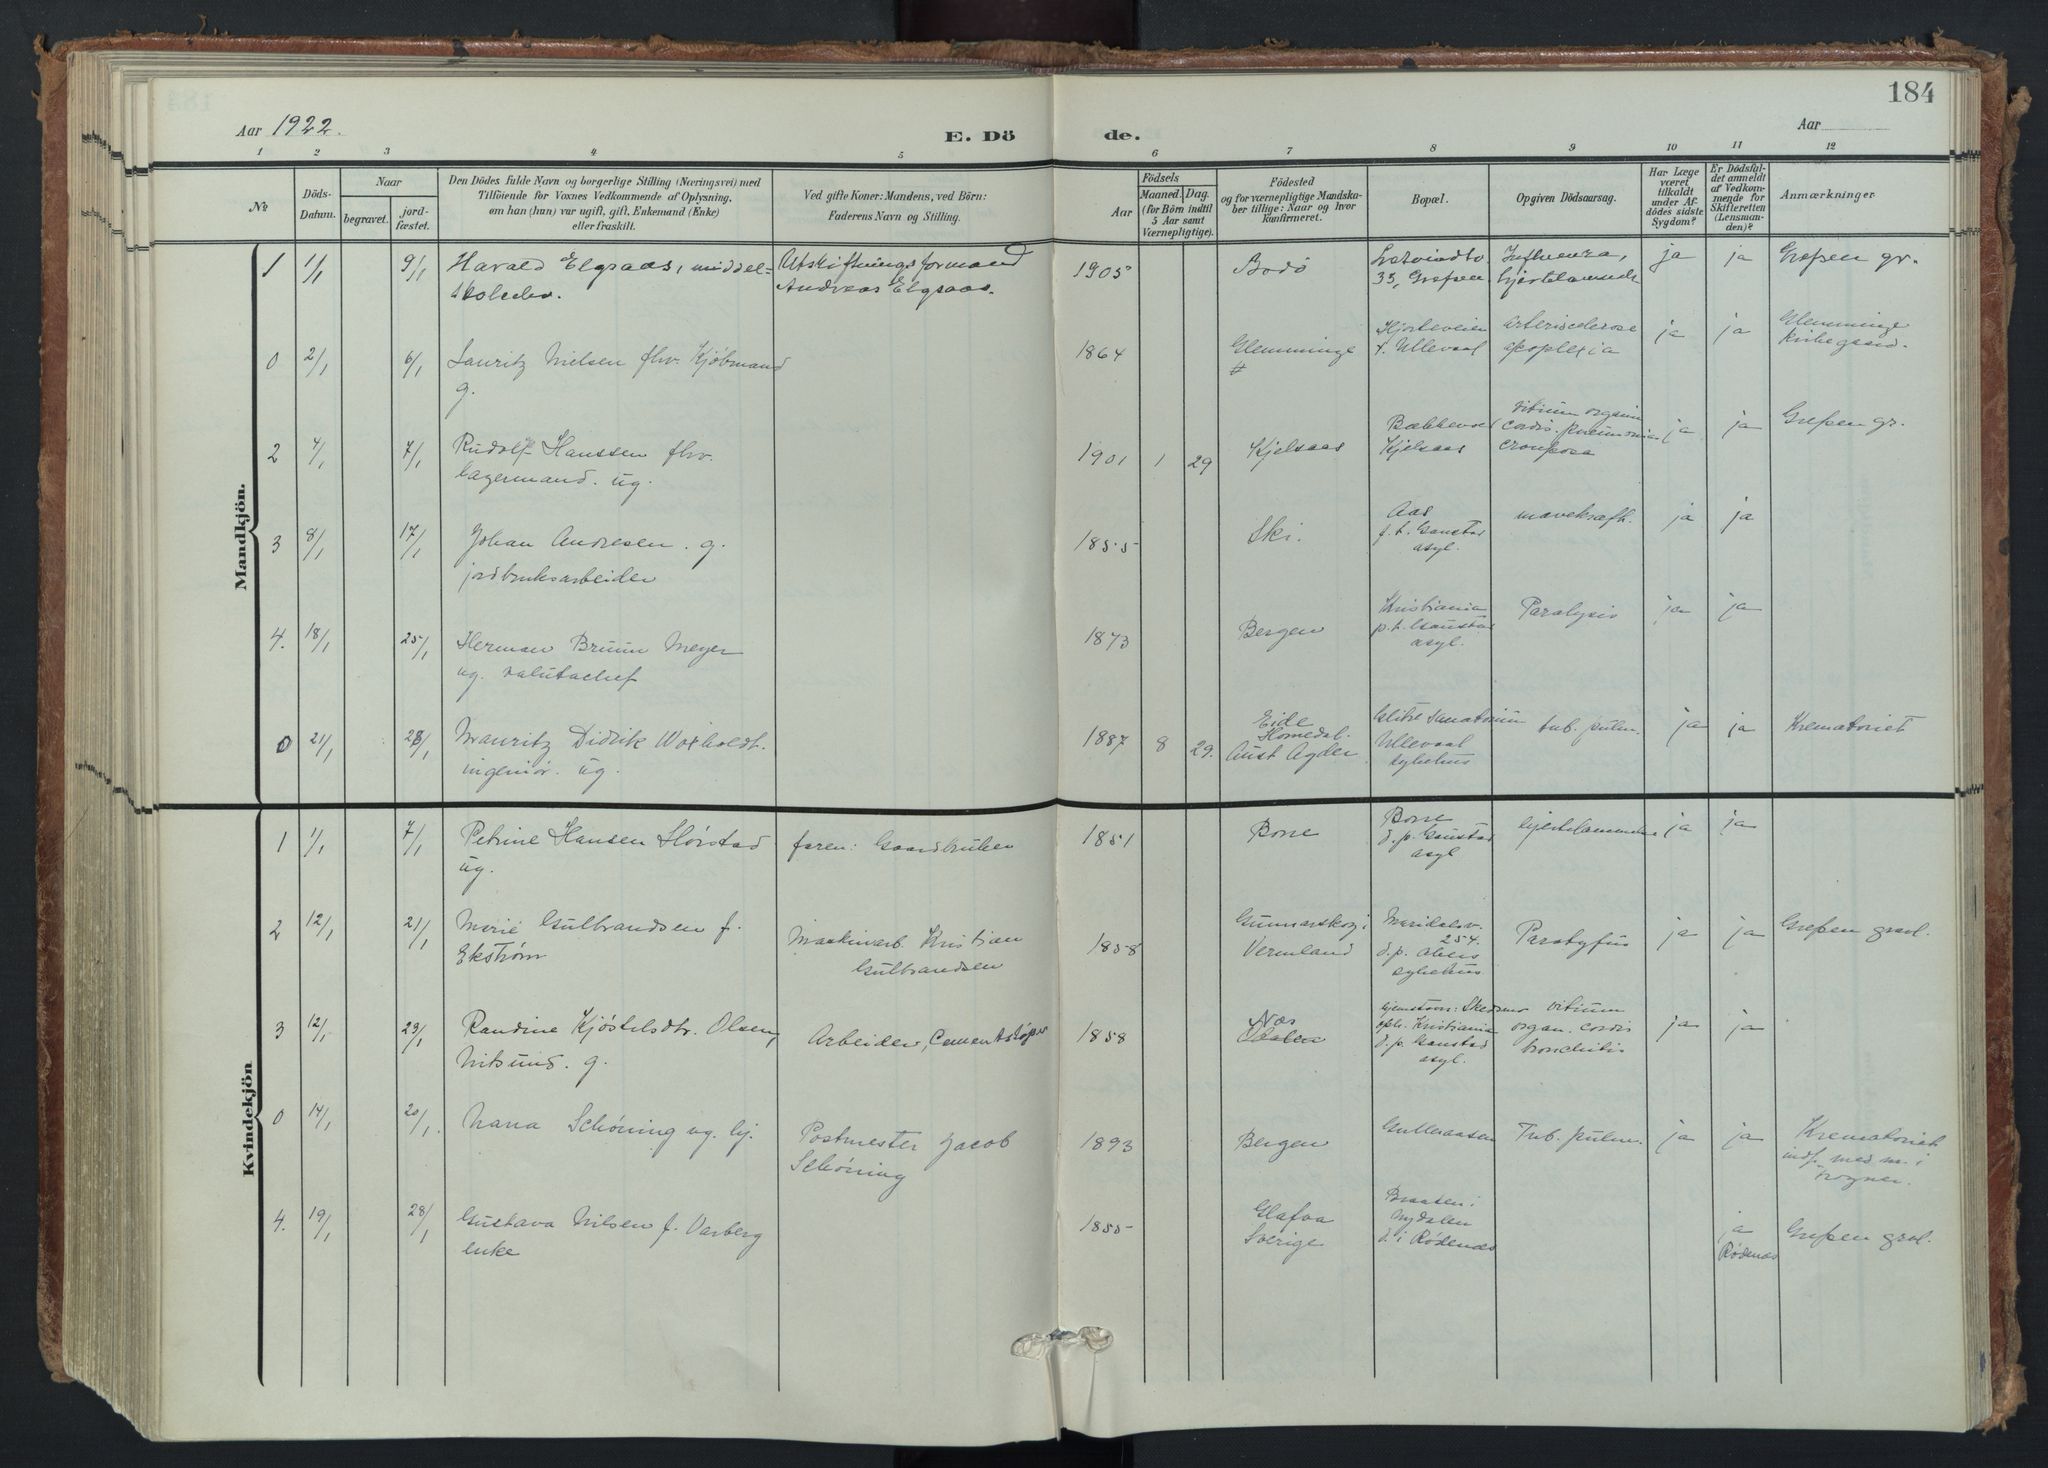 184
Aar 1922.
E. Dö
de.
Aar
1 2 3 4 5 6 7 8 9 10 11 12
№
Döds-
Datum.
Naar
begravet.
jord-
fæstet.
Den Dödes fulde Navn og borgerlige Stilling (Næringsvei) med
Tilföiende for Voxnes Vedkommende af Oplysning,
om han (hun) var ugift, gift, Enkemand (Enke)
eller fraskilt.
Ved gifte Koner: Mandens, ved Börn:
Faderens Navn og Stilling.
Födsels
Aar
Maaned. Dag.
(for Börn indtil
5 Aar samt
Værnepligtige).
Födested
og for værnepligtige Mandska-
ber tillige: Naar og hvor
konfirmeret.
Bopæl.
Opgiven Dödsaarsag.
Har Læge
været
tilkaldt
under Af-
dödes sidste
Sygdom?
Er Dödsfal-
det anmeldt
af Vedkom-
mende for
Skifteretten
(Lensman-
den)?
Anmærkninger
Mandkjön.
1 1/1 9/1 Harald Elgsaas, middel-
skoleelev.
Utskiftningsformand
Andreas Elgsaas.
1905 Bodö
33, Grefsen
Influenza,
hjertelammelse
ja ja Grefsen gr.
0 2/1 6/1 Lauritz Nielsen fhv. Kjøbmand
g.
1864 Glemminge
Hjorteveien
4. Ullevaal
Arteriscelerose
apoplexia
ja ja Glemminge
Kirkegaard.
2 4/1 7/1 Rudolf Hanssen fhv.
lagermand. ug.
1901 1 29 Kjelsaas
Kjelsaas
vitium organ.
cordis. pneumonia
crouposa
ja ja Grefsen gr.
3 8/1 17/1 Johan Andresen. g.
jordbruksarbeider
1855 Ski.
Aas
f. t. Gaustad
asyl.
mavekræft.
ja ja
4. 18/1 25/1 Herman Bruun Meyer
ug. valutachef
1873 Bergen
Kristiania
p. t. Gaustad
asyl.
Paralysis
ja ja
0 21/1 28/1 Mauritz Didrik Woxholdt.
ingeniør. ug.
1887 8 29.
Eide
Homedal.
Aust Agder
Glitre sanatorium
Ullevaal
sykehus
tub. pulm.
ja ja Krematoriet
Kvindekjön
1 1/1 7/1 Petrine Hansen Hørstad
ug.
faren: Gaardbruker
1851 Borre
Borre
d. p. Gaustad
asyl
hjertelammelse
ja ja
2 12/1 21/1 Marie Gulbrandsen f.
Ekstrøm
Maskinarb. Kristian
Gulbrandsen
1858
Gunnarskog i
Vermland
Maridalsv.
254.
d. p. Akers
sykehus.
Paratyfus
ja ja Grefsen gravl.
3 12/1 23/1 Randine Kjøstelsdtr. Olsen,
Nitsund. g.
Arbeider, Cementstøper
1858
Næs
hjemstavn: Skedsmo
oph. Kristiania
d. p. Gaustad
asyl.
vitium
organ. cordis
bronchitis
ja ja
0 14/1 20/1. Nana Schøning ug. hj.
Postmester Jacob
Schøning
1893 Bergen Gulleraasen Tub. pulm. ja ja
Krematoriet
indf. med nr. i
Frogner.
4. 19/1 28/1 Gustava Nilsen f. Varberg
enke
1855
Glafva
Sverige
Braaten i
Nydalen
d. i Rødenæs
ja
Rødenæs
Grefsen gravl.